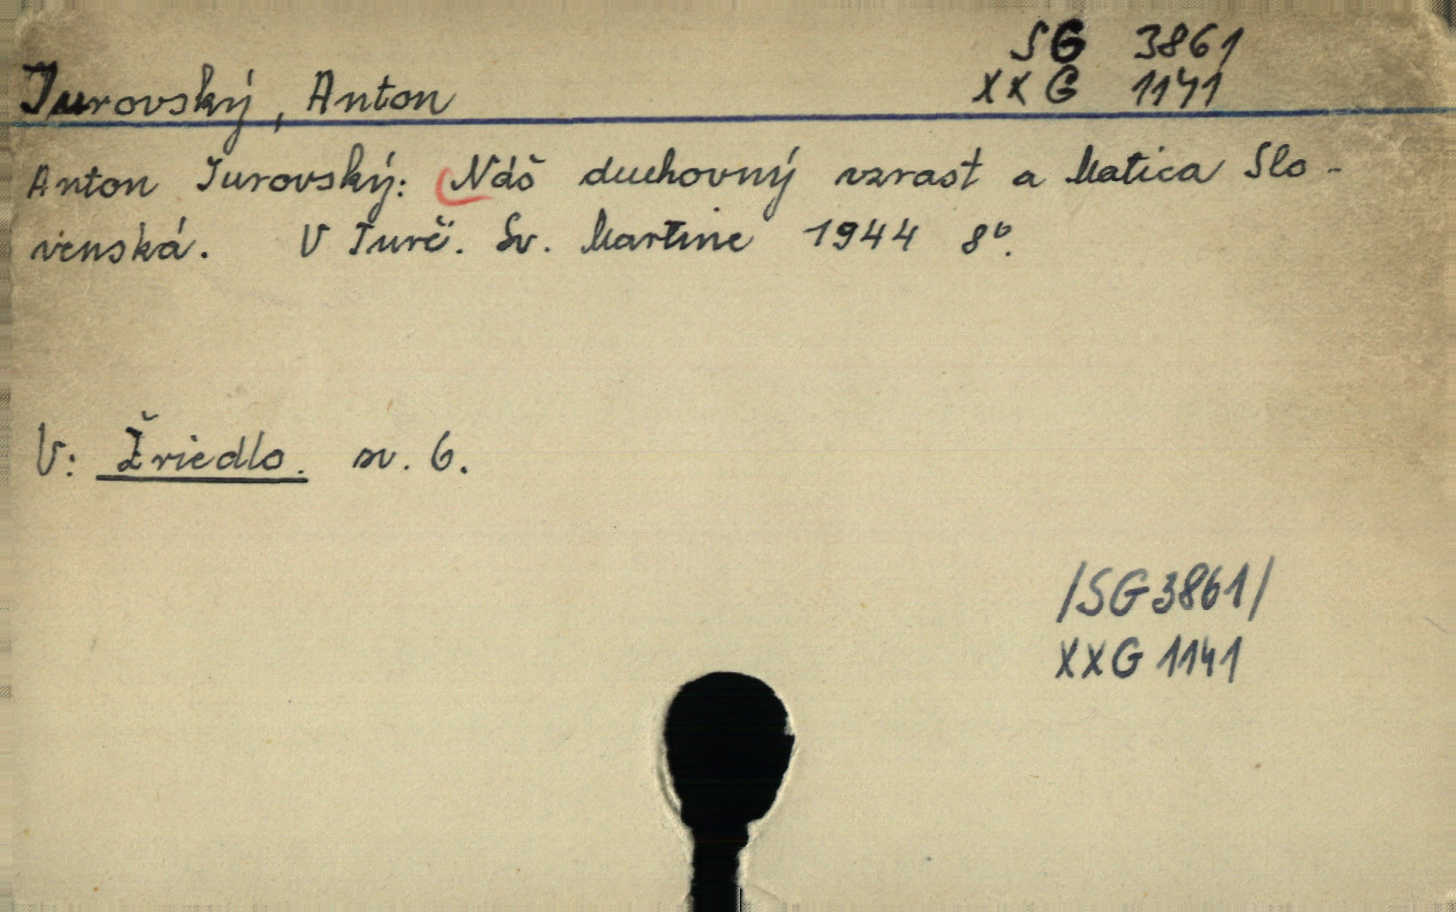 SG 3861
Jurovský, Anton XXG 1141
Anton Jurovský: Náš duchovný vzrast a Matica Slo-
venská. V Turč. Sv. Martine 1944 8°.
V: Žriedlo. sv. 6.
/SG 3861/
XXG 1141